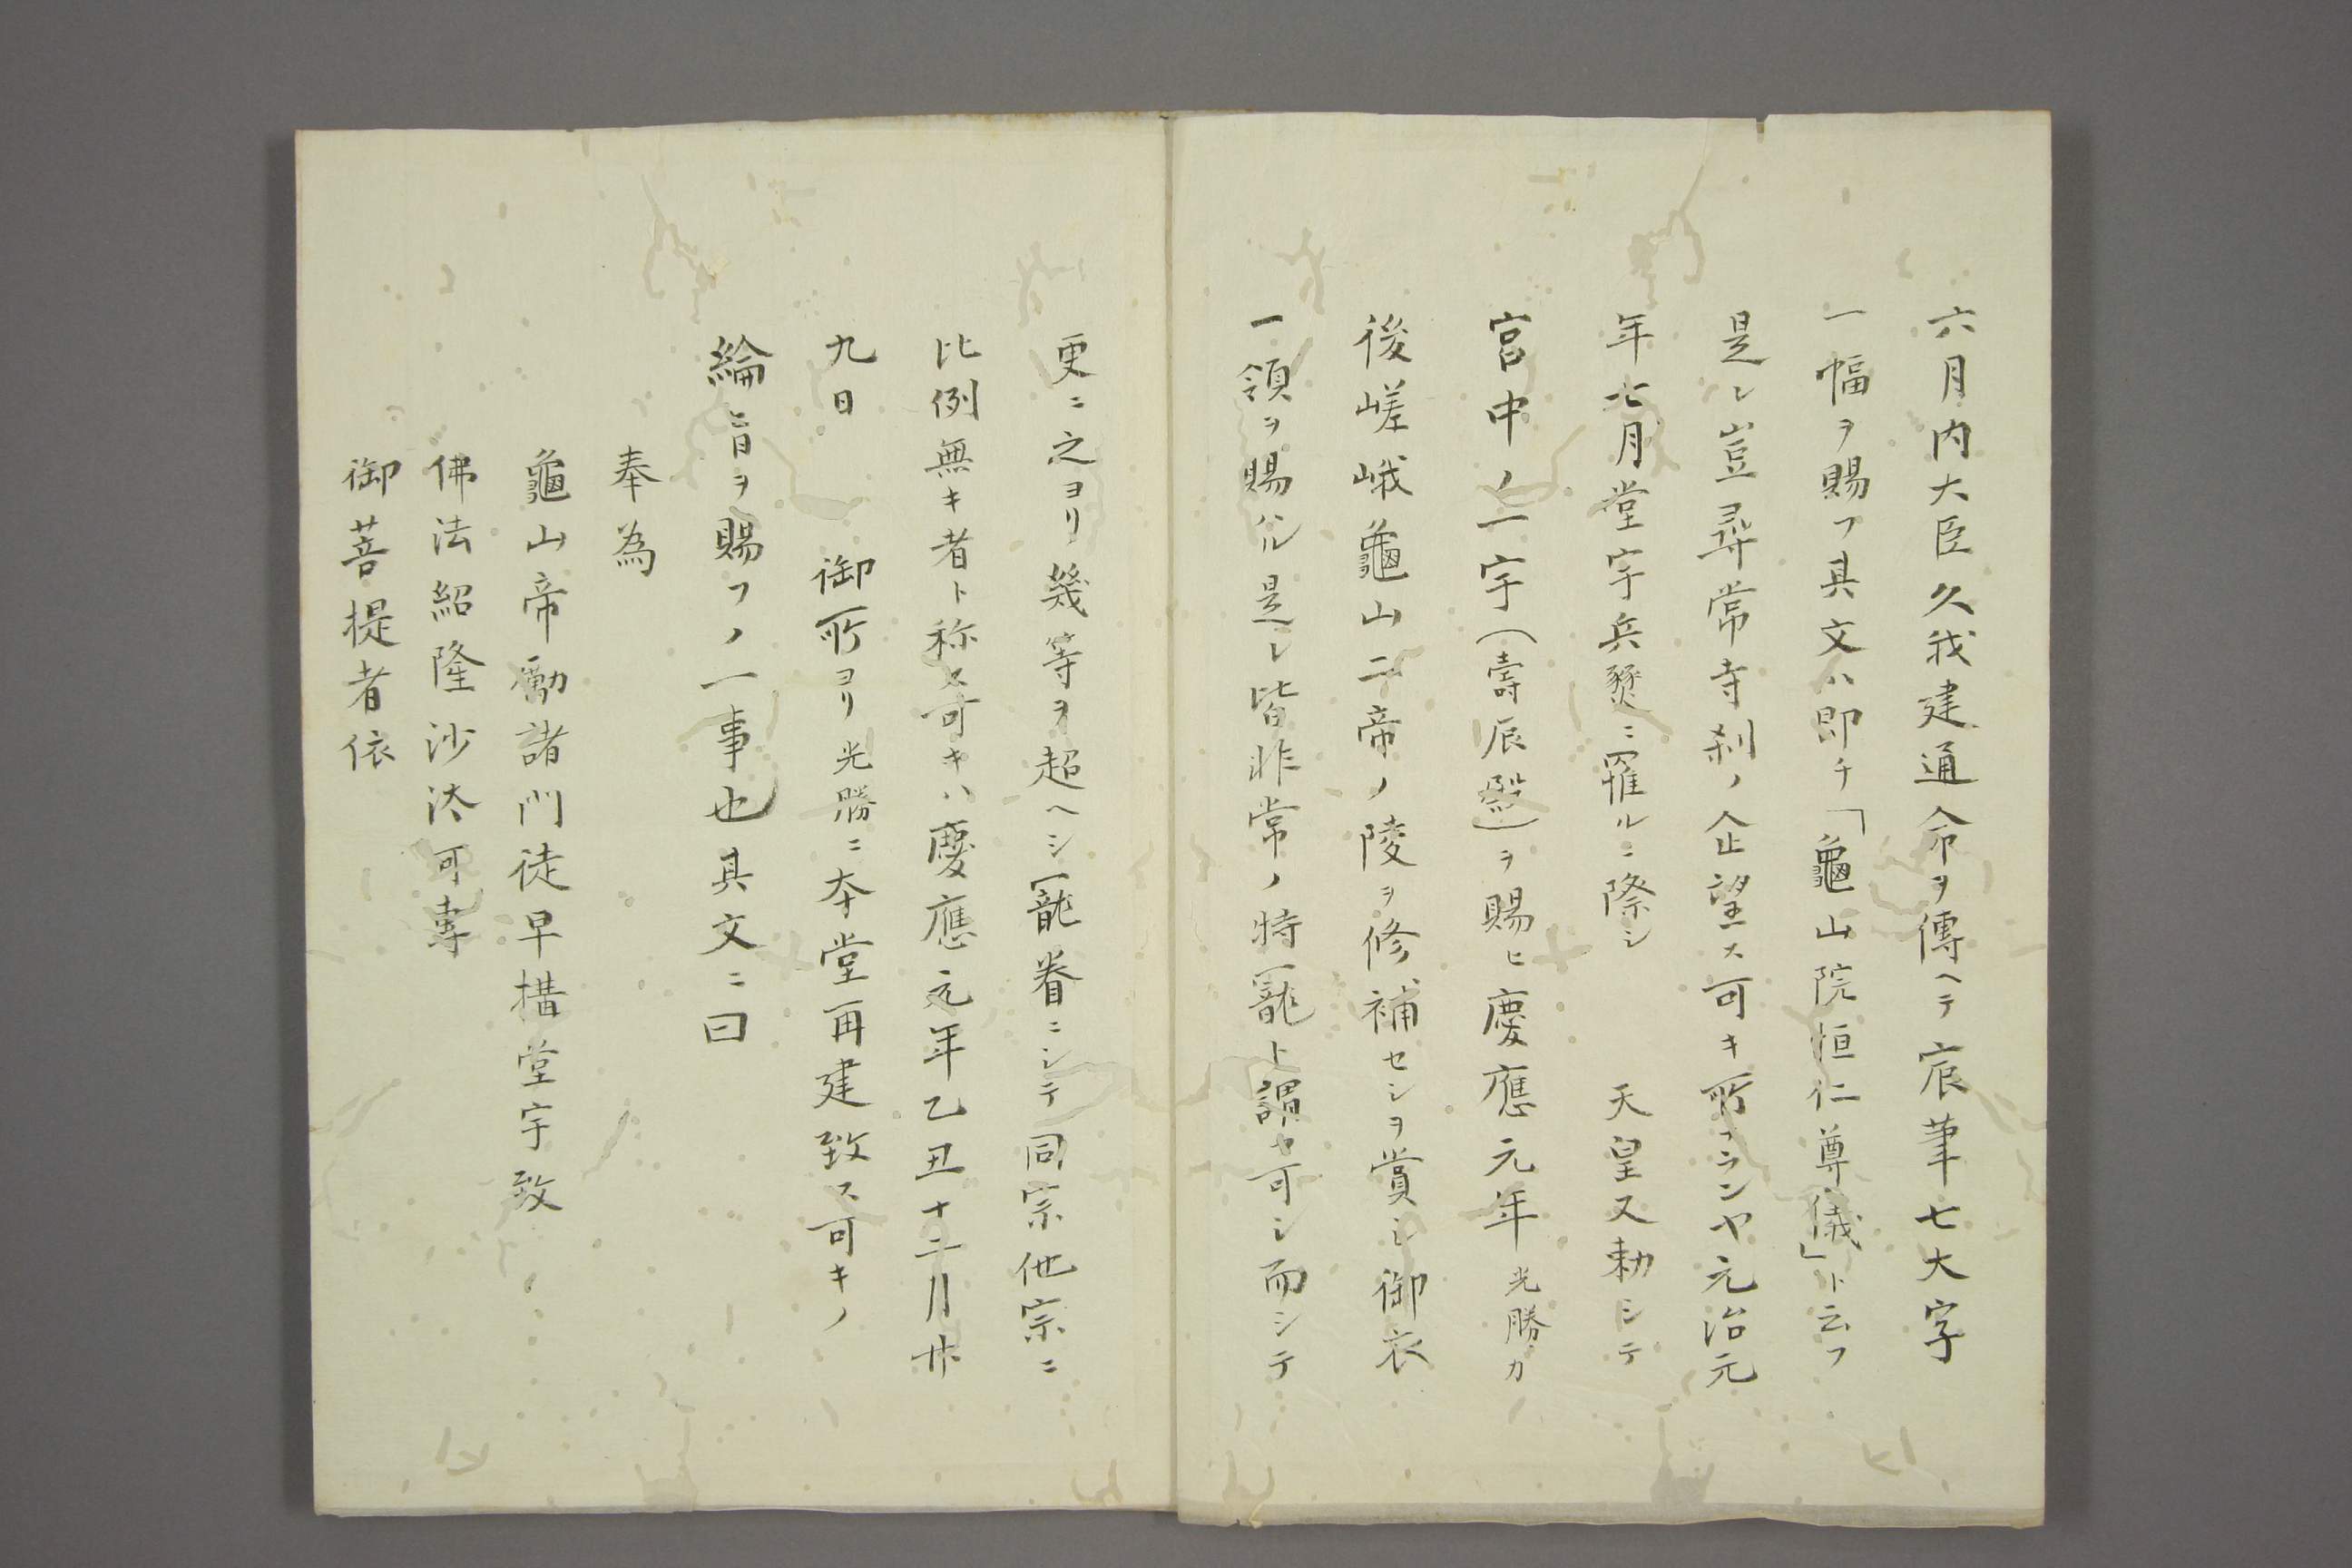 六月内大臣久我建通命ヲ傳ヘテ宸筆七大字
一幅ヲ賜フ其文ハ即チ「龜山院恒仁尊儀」ト云フ
是レ豈尋常寺刹ノ企望ス可キ所ランヤ元治元
年七月堂宇兵燹ニ罹ルニ際シ　天皇又勅シテ
宮中ノ一宇（壽辰殿）ヲ賜ヒ慶應元年光勝カ
後嵯峨龜山二帝ノ陵ヲ修補セシヲ賞シ御衣
一領ヲ賜ハル是レ皆非常ノ特寵ト謂ヤ可シ而シテ
更ニ之ヨリ幾等ヲ超ヘシ寵眷ニシテ同宗他宗ニ
比例無キ者ト称ス可キハ慶應元年乙丑十二月廿
九日　御所ヨリ光勝ニ本堂再建致ス可キノ
綸旨ヲ賜フノ一事也其文ニ曰
奉為
龜山帝勵諸門徒早構堂宇致
佛法紹隆沙汰可専
御菩提者依